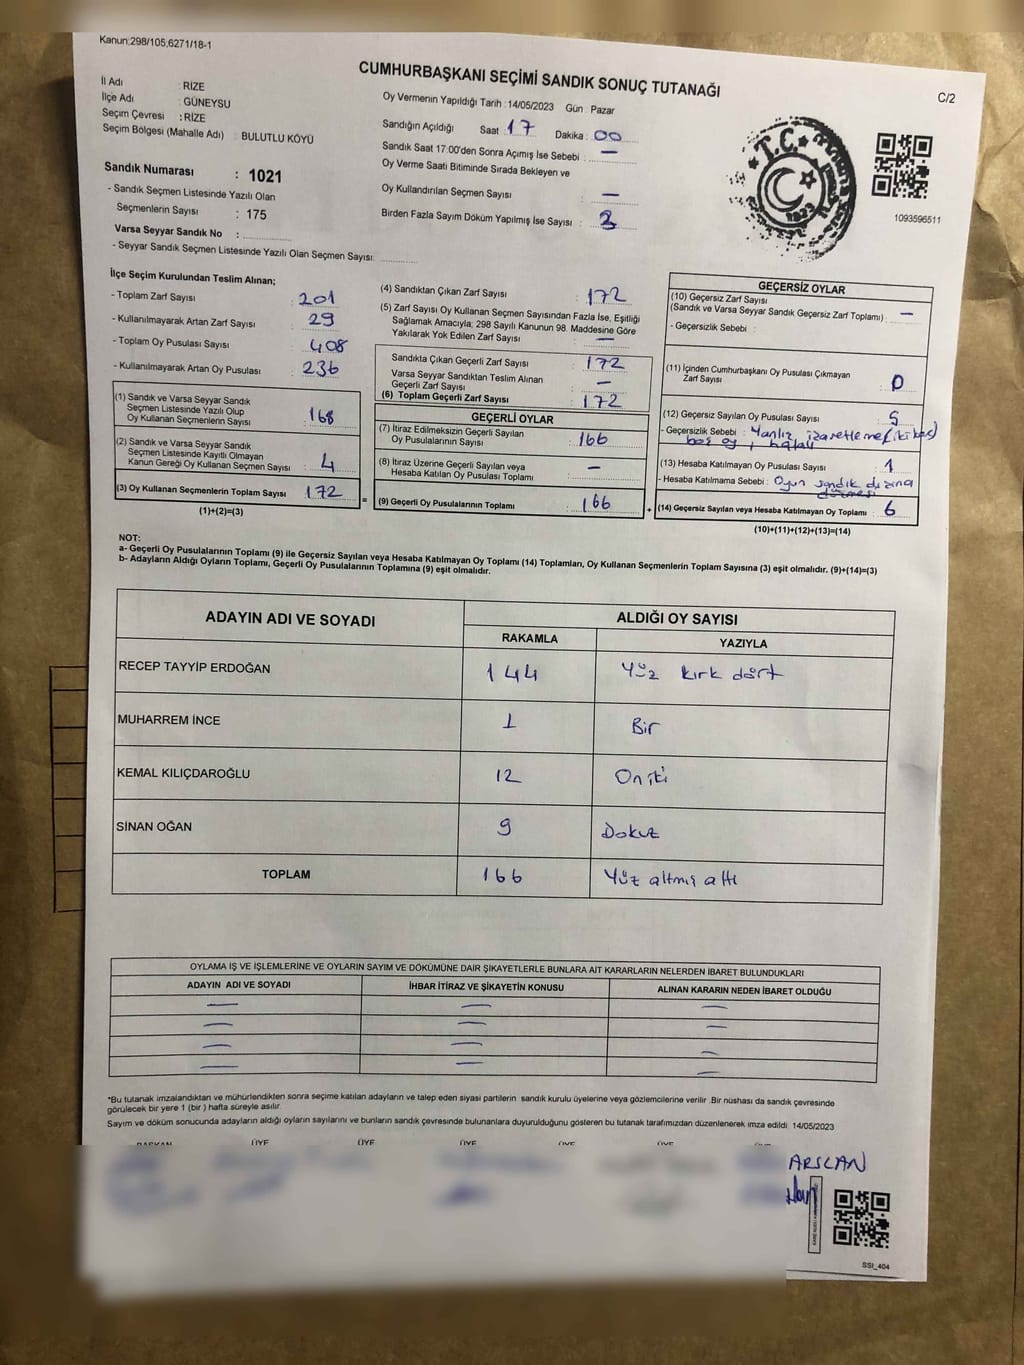 Kanun;298/105,6271/18-1
CUMHURBAŞKANI SEÇİMİ SANDIK SONUÇ TUTANAĞI
C/2
İl Adı : RİZE
İlçe Adı : GÜNEYSU
Seçim Çevresi : RİZE
Seçim Bölgesi (Mahalle Adı) : BULUTLU KÖYÜ
Sandık Numarası : 1021
- Sandık Seçmen Listesinde Yazılı Olan
Seçmenlerin Sayısı : 175
Varsa Seyyar Sandık No :
- Seyyar Sandık Seçmen Listesinde Yazılı Olan Seçmen Sayısı:
Oy Vermenin Yapıldığı Tarih : 14/05/2023 Gün : Pazar
Sandığın Açıldığı Saat : 17 Dakika : 00
Sandık Saat 17:00'den Sonra Açımış İse Sebebi : —
Oy Verme Saati Bitiminde Sırada Bekleyen ve
Oy Kullandırılan Seçmen Sayısı : —
Birden Fazla Sayım Döküm Yapılmış İse Sayısı :
T.C.
1093596511
İlçe Seçim Kurulundan Teslim Alınan;
- Toplam Zarf Sayısı : 201
- Kullanılmayarak Artan Zarf Sayısı : 29
- Toplam Oy Pusulası Sayısı : 408
- Kullanılmayarak Artan Oy Pusulası : 236
(1) Sandık ve Varsa Seyyar Sandık
Seçmen Listesinde Yazılı Olup
Oy Kullanan Seçmenlerin Sayısı : 168
(2) Sandık ve Varsa Seyyar Sandık
Seçmen Listesinde Kayıtlı Olmayan
Kanun Gereği Oy Kullanan Seçmen Sayısı : 4
(3) Oy Kullanan Seçmenlerin Toplam Sayısı : 172
(1)+(2)=(3)
(4) Sandıktan Çıkan Zarf Sayısı : 172
(5) Zarf Sayısı Oy Kullanan Seçmen Sayısından Fazla İse, Eşitliği
Sağlamak Amacıyla; 298 Sayılı Kanunun 98. Maddesine Göre
Yakılarak Yok Edilen Zarf Sayısı : —
Sandıkta Çıkan Geçerli Zarf Sayısı : 172
Varsa Seyyar Sandıktan Teslim Alınan
Geçerli Zarf Sayısı : —
(6) Toplam Geçerli Zarf Sayısı : 172
GEÇERLİ OYLAR
(7) İtiraz Edilmeksizin Geçerli Sayılan
Oy Pusulalarının Sayısı : 166
(8) İtiraz Üzerine Geçerli Sayılan veya
Hesaba Katılan Oy Pusulası Toplamı : —
= (9) Geçerli Oy Pusulalarının Toplamı : 166
GEÇERSİZ OYLAR
(10) Geçersiz Zarf Sayısı
(Sandık ve Varsa Seyyar Sandık Geçersiz Zarf Toplamı) : —
- Geçersizlik Sebebi :
(11) İçinden Cumhurbaşkanı Oy Pusulası Çıkmayan
Zarf Sayısı : 0
(12) Geçersiz Sayılan Oy Pusulası Sayısı : 5
- Geçersizlik Sebebi : Yanlız işaretleme (iki kez)
boş oy, hatalı
(13) Hesaba Katılmayan Oy Pusulası Sayısı : 1
- Hesaba Katılmama Sebebi : Oyun sandık dışına
düşmesi
+ (14) Geçersiz Sayılan veya Hesaba Katılmayan Oy Toplamı : 6
(10)+(11)+(12)+(13)=(14)
NOT:
a- Geçerli Oy Pusulalarının Toplamı (9) ile Geçersiz Sayılan veya Hesaba Katılmayan Oy Toplamı (14) Toplamları, Oy Kullanan Seçmenlerin Toplam Sayısına (3) eşit olmalıdır. (9)+(14)=(3)
b- Adayların Aldığı Oyların Toplamı, Geçerli Oy Pusulalarının Toplamına (9) eşit olmalıdır.
ADAYIN ADI VE SOYADI ALDIĞI OY SAYISI
RAKAMLA YAZIYLA
RECEP TAYYİP ERDOĞAN 144 Yüz kırk dört
MUHARREM İNCE 1 Bir
KEMAL KILIÇDAROĞLU 12 On iki
SİNAN OĞAN 9 Dokuz
TOPLAM 166 Yüz altmış altı
OYLAMA İŞ VE İŞLEMLERİNE VE OYLARIN SAYIM VE DÖKÜMÜNE DAİR ŞİKAYETLERLE BUNLARA AİT KARARLARIN NELERDEN İBARET BULUNDUKLARI
ADAYIN ADI VE SOYADI İHBAR İTİRAZ VE ŞİKAYETİN KONUSU ALINAN KARARIN NEDEN İBARET OLDUĞU
— — —
— — —
— — —
— — —
*Bu tutanak imzalandıktan ve mühürlendikten sonra seçime katılan adayların ve talep eden siyasi partilerin sandık kurulu üyelerine veya gözlemcilerine verilir .Bir nüshası da sandık çevresinde
görülecek bir yere 1 (bir ) hafta süreyle asılır.
Sayım ve döküm sonucunda adayların aldığı oyların sayılarını ve bunların sandık çevresinde bulunanlara duyurulduğunu gösteren bu tutanak tarafımızdan düzenlenerek imza edildi. 14/05/2023
BAŞKAN ÜYE ÜYE ÜYE ÜYE ÜYE ÜYE
ARSLAN
SSI_404